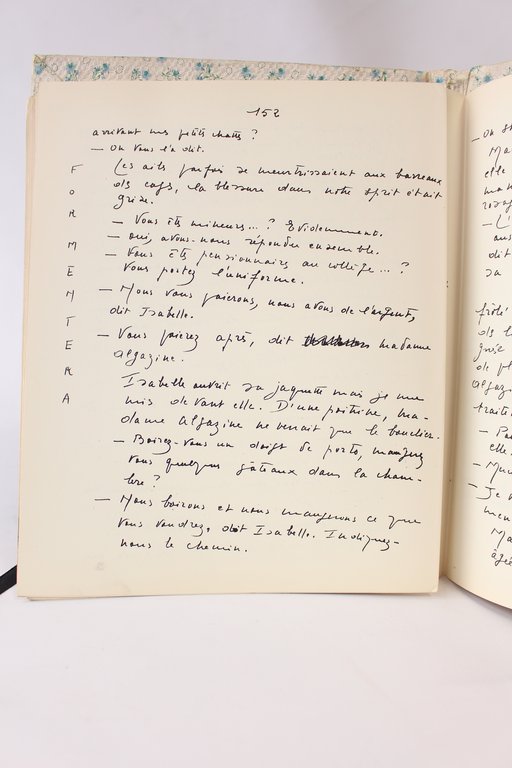 152
arrivant mes petites chattes ?
— On vous l'a dit.
Les ailes parfois se meurtrissaient aux barreaux
des cages, la blessure dans notre esprit était
grise.
— Vous êtes mineures... ? Evidemment.
— oui, avons-nous répondu ensemble.
— Vous êtes pensionnaires au collège... ?
Vous portez l'uniforme.
— Nous vous paierons, nous avons de l'argent,
dit Isabelle.
— Vous paierez après, dit madame
Algazine.
Isabelle ouvrit sa jaquette mais je me
mis devant elle. D'une poitrine, ma-
dame Algazine ne verrait que le bouclier.
— Boirez-vous un doigt de porto, mangerez
vous quelques gâteaux dans la cham-
bre ?
— Nous boirons et nous mangerons ce que
vous voudrez, dit Isabelle. Indiquez-
nous le chemin.
F
O
R
M
E
N
T
E
R
A
— On
Ma
elle
— L'
dit
sa
frôlé
ds l
de pl
Algaz
traits
elle.
— Je
men
Ma
âgée